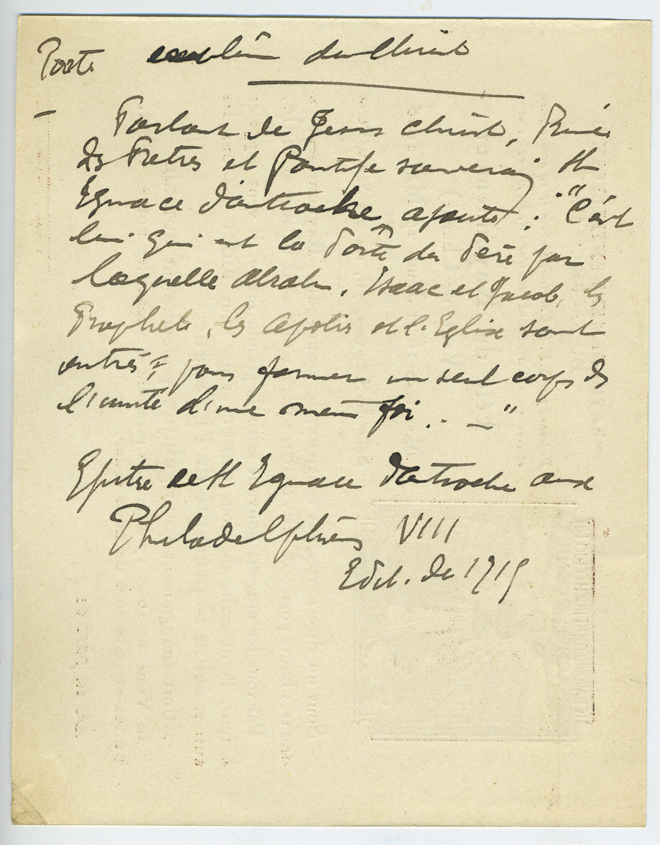 Porte emblême du Christ
Parlant de Jesus Christ, Prince
des Prêtres et Pontife souverain St
Ignace d'antioche ajoute : "C'est
lui qui est la Porte du Père par
laquelle Abrah. Isaac et Jacob, les
Prophetes, les Apotres et l'Eglise sont
entrés, pour former un seul corps ds
l'unité d'une meme foi . . — "
Epitre de St Ignace d'Antioche aux
Philadelphiens VIII
Edit. de